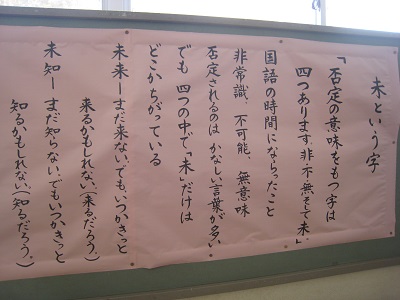 未という字
「否定の意味をもつ字は
四つあります。非・不・無そして未」
国語の時間にならったこと
非常識、不可能、無意味
否定されるのは かなしい言葉が多い
でも 四つの中で、「未」だけは
どこかちがっている
未来―まだ来ない、でも、いつかきっと
来るかもしれない、(来るだろう。)
未知―まだ知らない、でもいつかきっと
知るかもしれない、(知るだろう。)